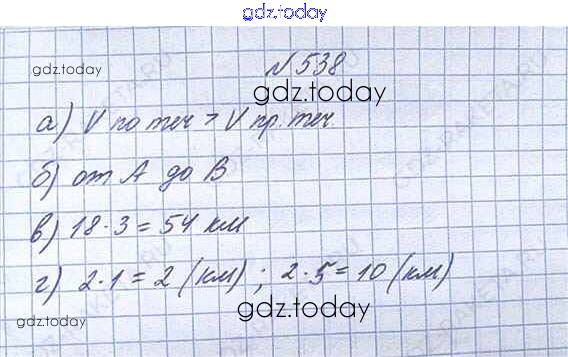 gdz.today
gdz.today
№ 538
gdz.today
а) V по теч > V пр. теч.
б) от А до В
в) 18 · 3 = 54 км
г) 2 · 1 = 2 (км) ; 2 · 5 = 10 (км)
gdz.today
gdz.today